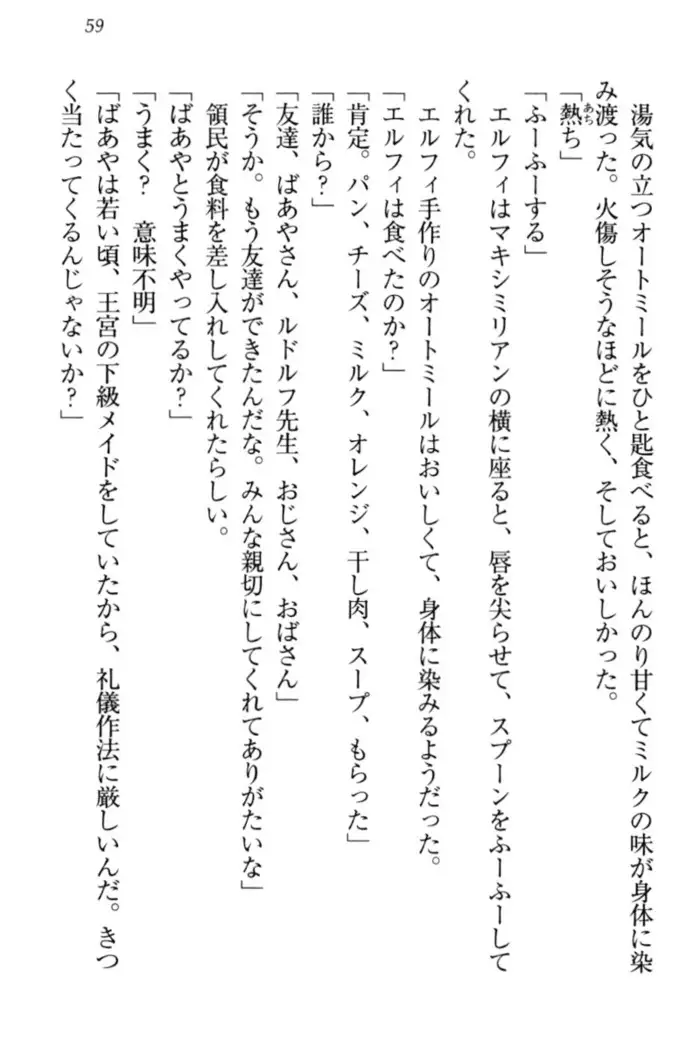 59
湯気の立つオートミールをひと匙食べると、ほんのり甘くてミルクの味が身体に染
み渡った。火傷しそうなほどに熱く、そしておいしかった。
「熱ち」
あち
「ふーふーする」
エルフィはマキシミリアンの横に座ると、唇を尖らせて、スプーンをふーふーして
くれた。
エルフィ手作りのオートミールはおいしくて、身体に染みるようだった。
「エルフィは食べたのか？」
「肯定。パン、チーズ、ミルク、オレンジ、干し肉、スープ、もらった」
「誰から？」
「友達、ばあやさん、ルドルフ先生、おじさん、おばさん」
「そうか。もう友達ができたんだな。みんな親切にしてくれてありがたいな」
領民が食料を差し入れしてくれたらしい。
「ばあやとうまくやってるか？」
「うまく？　意味不明」
「ばあやは若い頃、王宮の下級メイドをしていたから、礼儀作法に厳しいんだ。きつ
く当たってくるんじゃないか？」